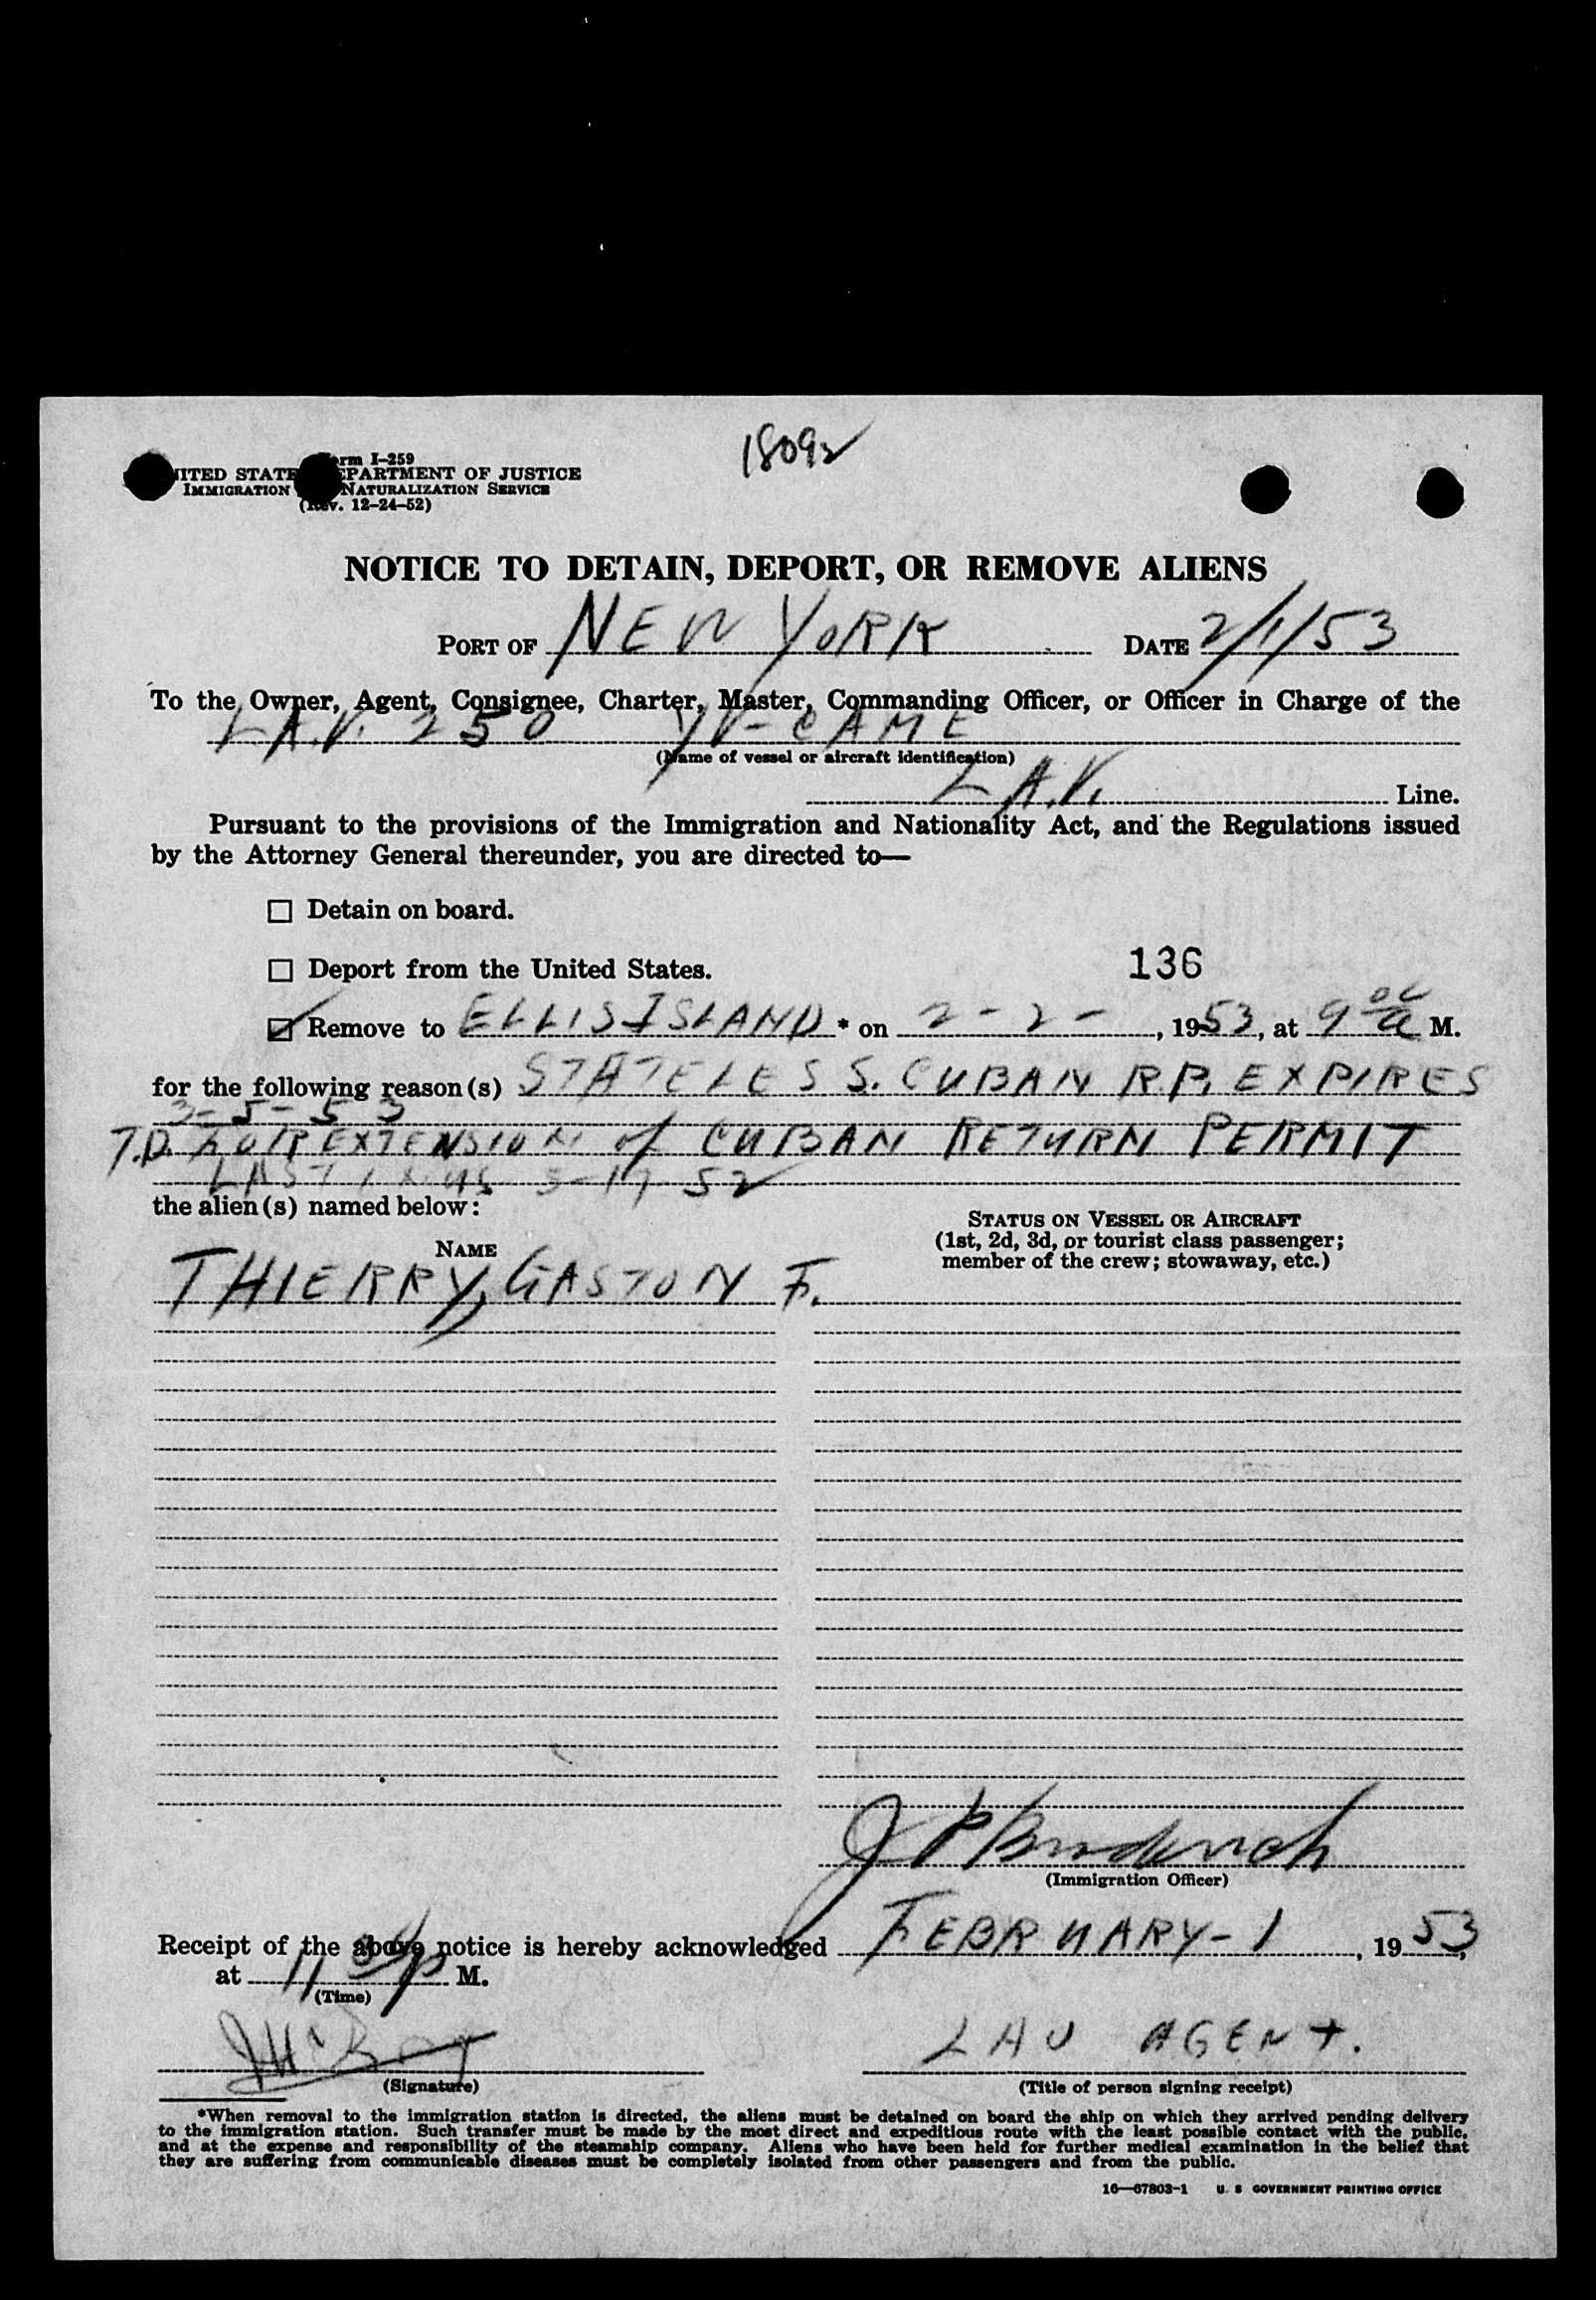 18092
Form I-259
UNITED STATES DEPARTMENT OF JUSTICE
IMMIGRATION NATURALIZATION SERVICE
(Rev. 12-24-52)
NOTICE TO DETAIN, DEPORT, OR REMOVE ALIENS
PORT OF NEW YORK DATE 2/1/53
To the Owner, Agent, Consignee, Charter, Master, Commanding Officer, or Officer in Charge of the
L.A.V. 250 YV-CAME
(Name of vessel or aircraft identification)
L.A.V. Line.
Pursuant to the provisions of the Immigration and Nationality Act, and the Regulations issued
by the Attorney General thereunder, you are directed to—
☐ Detain on board.
☐ Deport from the United States. 136
☑ Remove to ELLIS ISLAND * on 2-2-, 1953, at 9 a M.
for the following reason(s) STATELESS. CUBAN R.P. EXPIRES
3-5-53
T.D. FOR EXTENSION of CUBAN RETURN PERMIT
LAST 52
the alien(s) named below:
STATUS ON VESSEL OR AIRCRAFT
(1st, 2d, 3d, or tourist class passenger;
member of the crew; stowaway, etc.)
NAME
THIERRY, GASTON F.
J P Broderick
(Immigration Officer)
Receipt of the above notice is hereby acknowledged FEBRUARY-1, 1953,
at 11 p M.
(Time)
LAV AGENT.
(Signature) (Title of person signing receipt)
*When removal to the immigration station is directed, the aliens must be detained on board the ship on which they arrived pending delivery
to the immigration station. Such transfer must be made by the most direct and expeditious route with the least possible contact with the public,
and at the expense and responsibility of the steamship company. Aliens who have been held for further medical examination in the belief that
they are suffering from communicable diseases must be completely isolated from other passengers and from the public.
16—67803-1 U. S GOVERNMENT PRINTING OFFICE